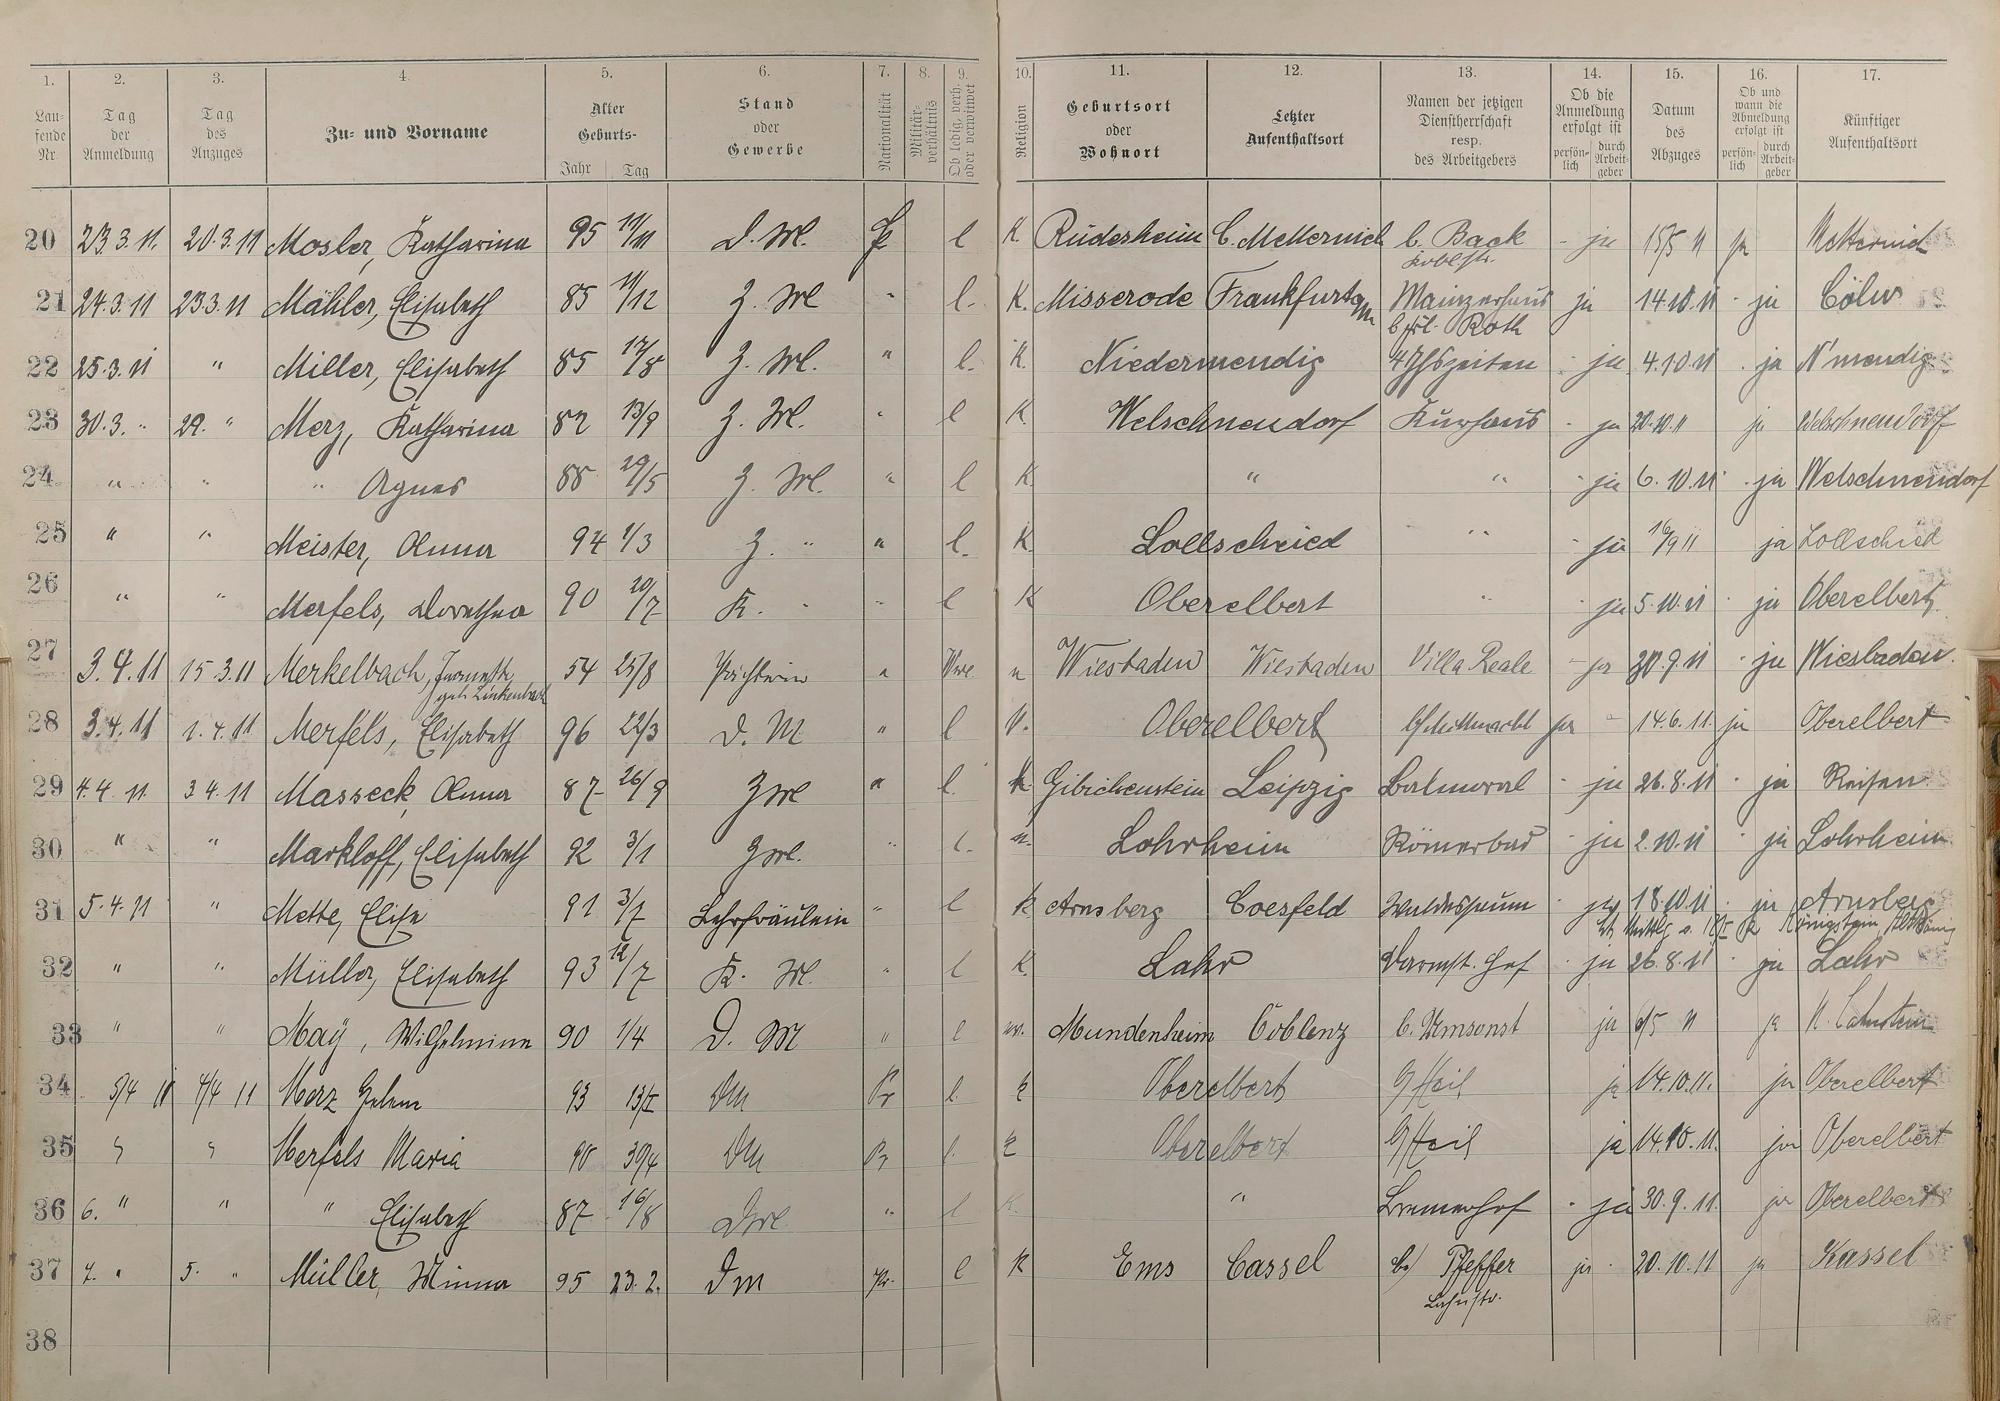 1. 2. 3. 4. 5. 6. 7. 8. 9. 10. 11. 12. 13. 14. 15. 16. 17.
Laufende Nr.
Tag der Anmeldung
Tag des Anzuges
Zu- und Vorname
Alter Geburts- Jahr Tag
Stand oder Gewerbe
Nationalität
Militärverhältnis
Ob ledig, verh. oder verwitwet
Religion
Geburtsort oder Wohnort
Letzter Aufenthaltsort
Namen der jetzigen Dienstherrschaft resp. des Arbeitgebers
Ob die Anmeldung erfolgt ist persönlich durch Arbeitgeber
Datum des Abzuges
Ob und wann die Abmeldung erfolgt ist persönlich durch Arbeitgeber
Künftiger Aufenthaltsort
20 23.3.11. 20.3.11 Mosler, Katharina 95 11/11 D. M. Pr l K. Rüdesheim C. Metternich b. Back - ja 15/5 11 ja Metternich
Koblstr.
21 24.3.11 23.3.11 Mähler, Elisabeth 85 11/12 Z. M " l. K. Misserode Frankfurt a/M Mainzerhaus ja 14.10.11 - ja Cöln
b Frl. Roth
22 25.3.11 " Miller, Elisabeth 85 17/8 Z. M. " l. K. Niedermendig 4 Jhszeiten - ja 4.10.11 - ja N'mendig
23 30.3. " 29. " Merz, Katharina 82 13/9 Z. M. " l K. Welschneudorf Kurhaus - ja 20.10.11 ja Welschneudorf
24 " " " Agnes 88 29/5 Z. M. " l K. " " - ja 6.10.11 - ja Welschneudorf
25 " " Meister, Anna 94 1/3 Z. " " l. K. Lollschried " - ja 16/9 11 ja Lollschied
26 " " Merfels, Dorothea 90 20/7 K. " " l K Oberelbert " - ja 5.10.11 - ja Oberelbert
27 3.4.11 15.3.11 Merkelbach, Jeanette 54 25/8 Pächterin " Wwe Wiesbaden Wiesbaden Villa Reale - ja 30.9.11 - ja Wiesbaden.
geb. Linkenbach
28 3.4.11 1.4.11 Merfels, Elisabeth 96 22/3 D. M " l Oberelbert ja - 14.6.11. ja Oberelbert
29 4.4.11 3 4.11 Masseck, Anna 87 26/9 ZM " l. k Gibichenstein Leipzig Balmoral - ja 26.8.11 - ja Reisen
30 " " Markloff, Elisabeth 92 3/1 ZM. " l. Lohrheim Römerbad - ja 2.10.11 " ja Lohrheim.
31 5.4.11 " Mette, Elise 91 3/7 Lehrfräulein " l k Arnsberg Coesfeld - ja 18.10.11 - ja Arnsberg
Königstein
32 " " Müller, Elisabeth 93 12/7 K. M. " l K. Lahr Darmst. Hof - ja 26.8.11 - ja Lahr
33 " " Maÿ, Wilhelmine 90 1/4 D. M " l Mundenheim Coblenz b. Umsonst ja 6/5 11 ja N. Lahnstein
34 5/4 11 4/4 11 Merz 93 DM Pr l. k Oberelbert Heil ja 14.10.11. ja Oberelbert
35 Merfels Maria 90 30/4 DM Pr l. k Oberelbert Heil ja 14.10.11. ja Oberelbert
36 6. " " " Elisabeth 87 16/8 DM " l K. " Bremerhof - ja 30.9.11. ja Oberelbert
37 7. " 5. " Müller, Minna 95 23.2. DM Pr. l k Ems Cassel b/ Pfeffer ja - 20.10.11 ja Kassel
Lahnstr.
38